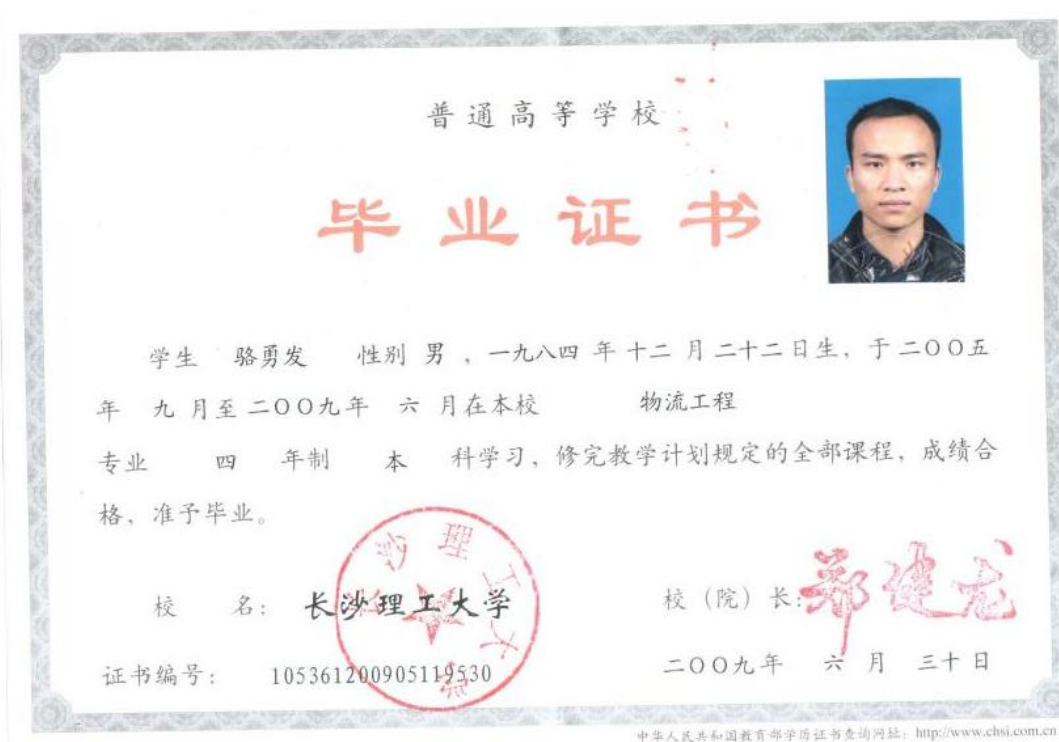 普通高等学校
毕业证书
学生 骆勇发 性别 男 ，一九八四 年 十二 月 二十二 日生，于 二〇〇五
年 九 月至 二〇〇九年 六 月在本校 物流工程
专业 四 年制 本 科学习，修完教学计划规定的全部课程，成绩合
格，准予毕业。
校 名： 长沙理工大学
长沙理工大学
校（院）长： 郑健龙
证书编号： 105361200905119530
二〇〇九年 六 月 三十 日
中华人民共和国教育部学历证书查询网址：http://www.chsi.com.cn